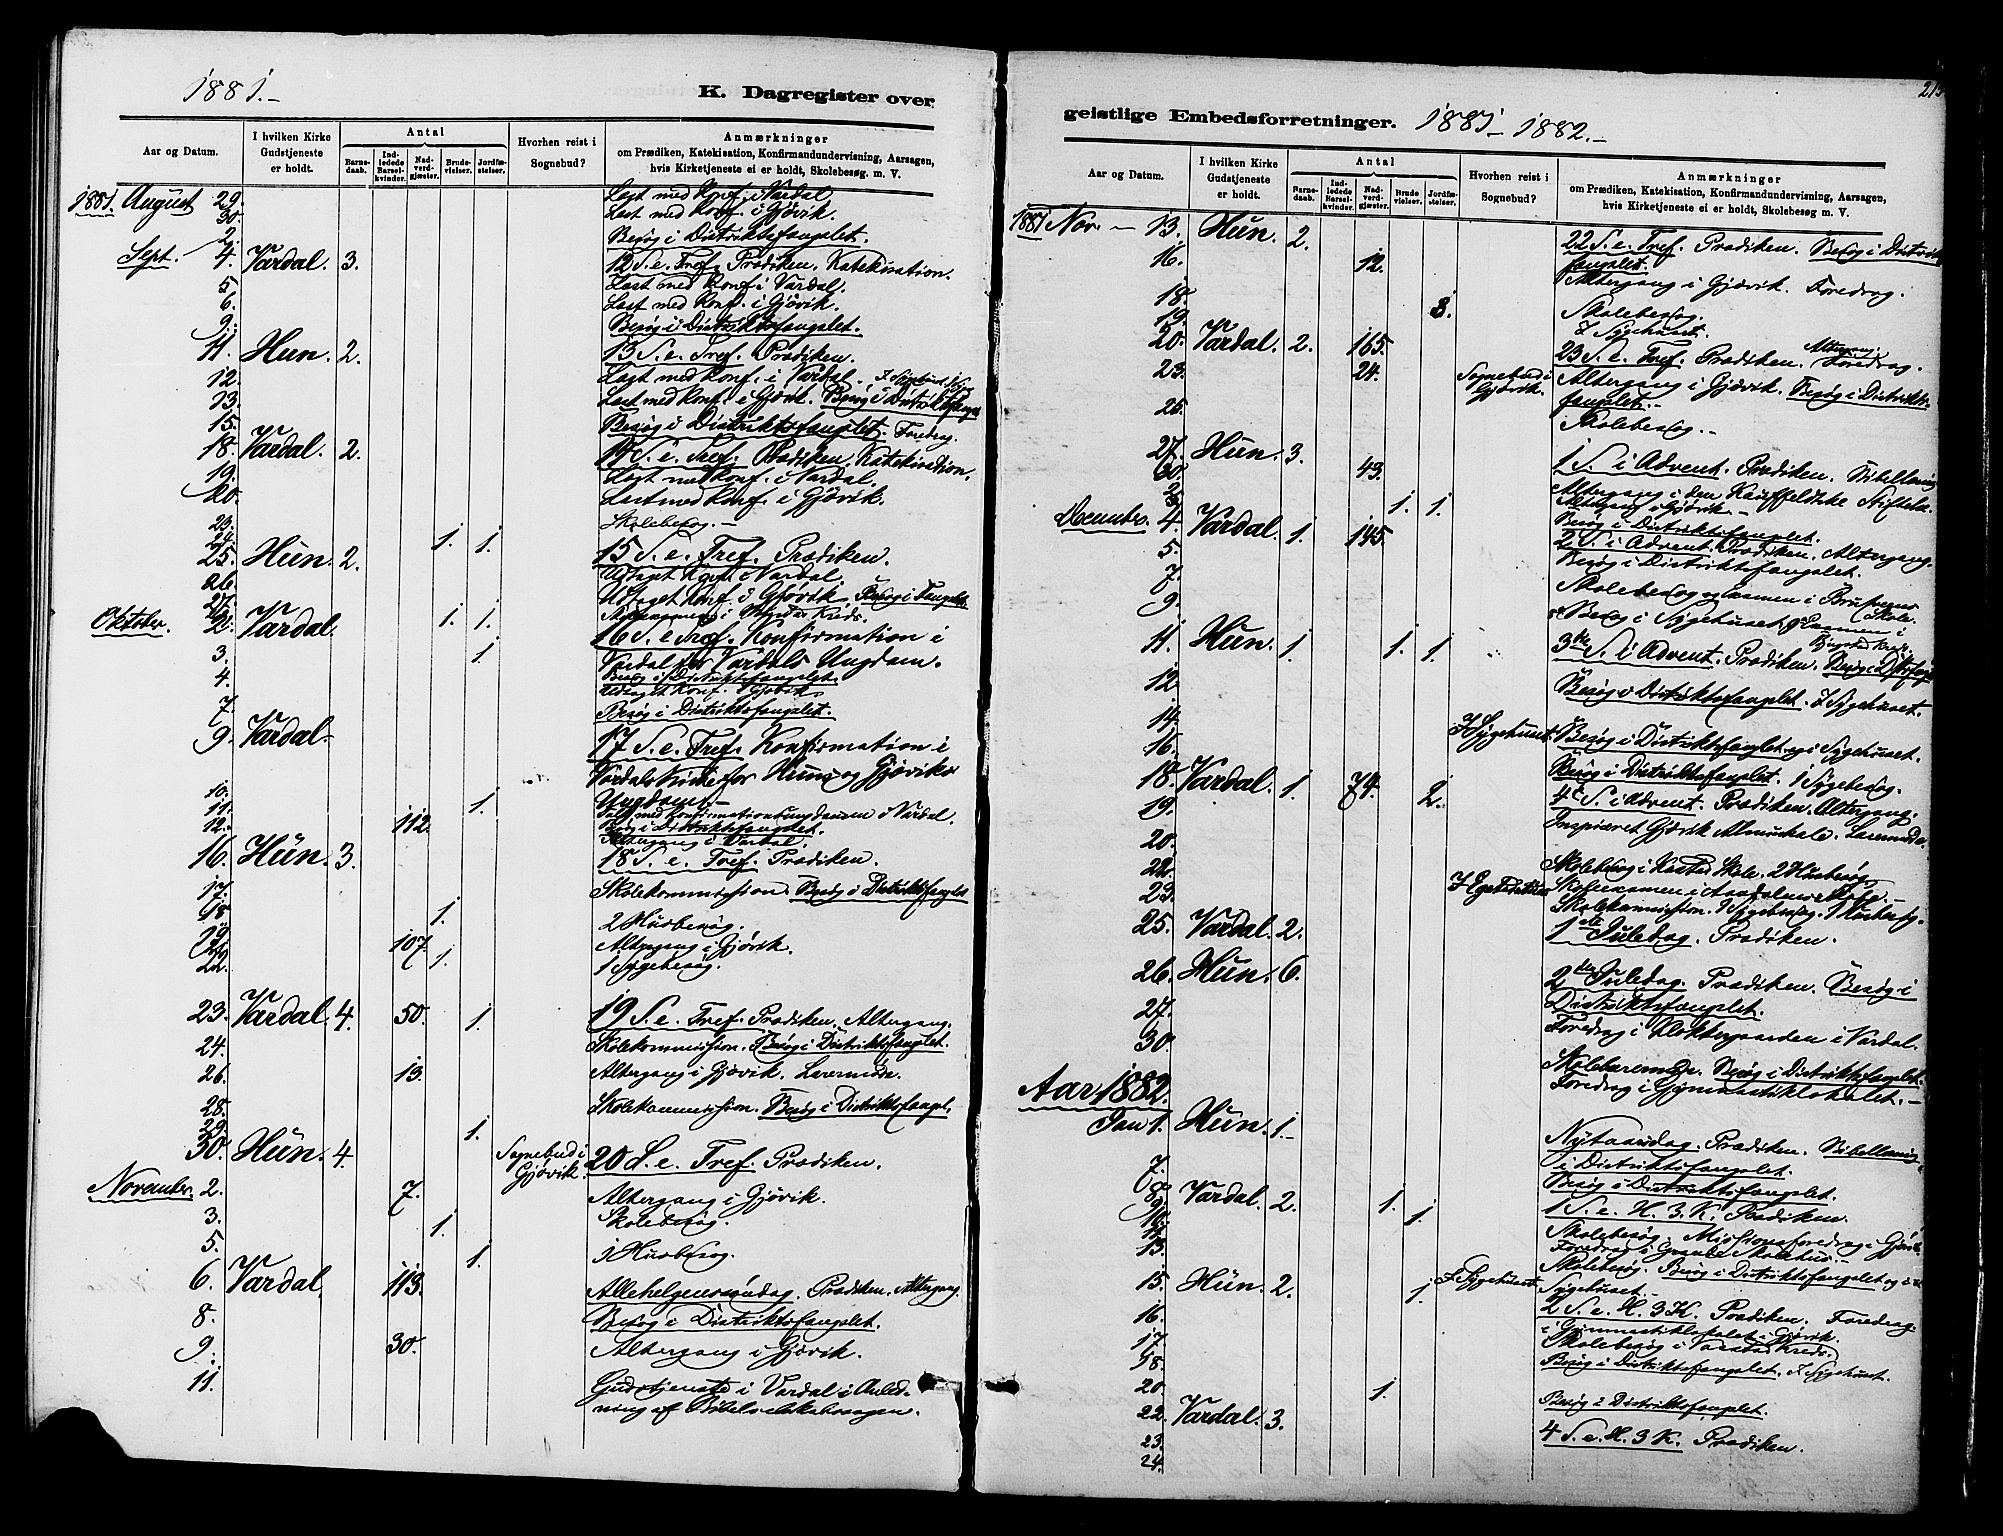 1881.-
K. Dagregister over
Aar og Datum.
I hvilken Kirke Gudstjeneste er holdt.
Antal
Barne-daab.
Ind-ledede Barsel-kvinder.
Nad-verd-gjæster.
Brude-vielser.
Jordfæ-stelser.
Hvorhen reist i Sognebud?
Anmærkninger
om Prædiken, Katekisation, Konfirmandundervisning, Aarsagen,
hvis Kirketjeneste ei er holdt, Skolebesøg m. V.
1881. August 29. Læst med Konf. i Vardal
30. Læst med Konf. i Gjøvik.
Sept. 2. Besøg i Distriktsfængslet.
4. Vardal. 3. 12 S. e. Tref. Prædiken. Katekisation.
5 Læst med Konf. i Vardal.
6. Læst med Konf. i Gjøvik.
9. Besøg i Distriktsfængslet.
11. Hun. 2. 13 S. e. Tref. Prædiken.
12. Læst med Konf. i Vardal.
13. Læst med Konf. i Gjøvik. Besøg i Distriktsfængs
15. Besøg i Distriktsfængslet. Foredrag.
18. Vardal. 2. 14 S. e. Tref. Prædiken. Katekisation.
19. Læst med Konf. i Vardal.
20. Læst med Konf. i Gjøvik.
23. Skolebesøg.-
24. 1. 1.
25. Hun. 2. 15 S. e. Tref. Prædiken.
26. Konf. i Vardal.
27. Konf. i Gjøvik. Besøg i Fængslet
Oktober. 2. Vardal. 1. 1. 16 S. e. Tref. Konfirmation i
3. 1. Vardal for Vardals Ungdom.
4. Besøg i Distriktsfængslet.
Konf. i Gjøvik.
7. Besøg i Distriktsfængslet.
9. Vardal.- 17 S. e. Tref. Konfirmation i
Vardals Kirke for Huns og Gjøviks
10. Ungdom.-
11. 1. med Konfirmationsungdommen i Vardal.
12. 112. Besøg i Distriktsfængslet.
Altergang i Vardal.
16. Hun. 3. 18 S. e. Tref. Prædiken.
17. Skolekommission. Besøg i Distriktsfængslet
18 1. 2 Husbesøg.
19. 107. Altergang i Gjøvik.
22. 1. 1 Sygebesøg.
23. Vardal. 4. 50. 1. 19 S. e. Tref. Prædiken. Altergang.
24. Skolekommission. Besøg i Distriktsfængslet.
26. 13. Altergang i Gjøvik. Læremøde.
28. Skolekommission. Besøg i Distriktsfængsl.
29. 1.
30. Hun. 4. Sognebud i Gjøvik. 20 S. e. Tref. Prædiken.
November. 2. 7. Altergang i Gjøvik.
3. 1. Skolebesøg.
5. 1. 1 Husbesøg.
6. Vardal. 113. Allehelgensøndag. Prædiken. Altergang
8. Besøg i Distriktsfængslet.
9. 30. Altergang i Gjøvik.
11. Gudstjeneste i Vardal i Anled-
ning af Bibelselskabssagen.
215
geistlige Embedsforretninger. 1881-1882.-
Aar og Datum.
I hvilken Kirke Gudstjeneste er holdt.
Antal
Barne-daab.
Ind-ledede Barsel-kvinder.
Nad-verd-gjæster.
Brude vielser.
Jordfæ-stelser.
Hvorhen reist i Sognebud?
Anmærkninger
om Prædiken, Katekisation, Konfirmandundervisning, Aarsagen,
hvis Kirketjeneste ei er holdt, Skolebesøg m. V.
1881 Nov.- 13. Hun. 2. 22 S. e. Tref. Prædiken. Besøg i Distrikts
fængslet.
16. 12. Altergang i Gjøvik. Foredrag.
18. 8. Skolebesøg.
19. I Sygehuset.
20. Vardal. 2. 165. 23 S. e. Tref. Prædiken. Altergang. Foredrag.
23. 24. Sognebud i Gjøvik. Altergang i Gjøvik. Besøg i Distrikts-
fængslet.-
25. Skolebesøg.-
27. Hun. 3. 1 S. i Advent. Prædiken. Bibellæsning
30. 43. Altergang i den Stiftelse.
Altergang i Gjøvik.-
2. 1. 1. Besøg i Distriktsfængslet.
December. 4. Vardal. 1. 145. 2 S. i Advent. Prædiken. Altergang.
5. Besøg i Distriktsfængslet.
7. Skolebesøg og Examen i
Skole.
9. Besøg i Sygehuset. Examen i
11. Hun. 1. 1. 1. 3die S. i Advent. Prædiken.
12. Besøg i Distriktsfængslet. I Sygehuset.
14. I Sygehuset. Besøg i Distriktsfænglet og i Sygehuset.
16. Besøg i Distriktsfængslet. 1 Sygebesøg.
18. Vardal. 1. 74. 2. 4e S. i Advent. Prædiken. Altergang.
19. Inspiceret Gjøvik Almueskole. Læremøde.
20.
22. Skolebesøg i Skole. 2 Husbesøg.
23. Skoleexamen i
Skolekommission. 1 Sygebesøg. 1 Husbesøg.
25. Vardal. 2. 1ste Juledag. Prædiken.
26. Hun. 6. 2den Juledag. Prædiken. Besøg i
Distriktsfængslet.
27. Foredrag i Klokkergaarden i Vardal.
30. Besøg i Distriktsfængslet.
Foredrag i Gymnastiklokalet.-
Aar 1882.
Jan 1. Hun. 1.- Nytaarsdag. Prædiken. Bibellæsning
i Distriktsfængslet.
7. Besøg i Distriktsfængslet.
8. Vardal. 2. 1. 1 S. e. H. 3. K. Prædiken.
9. 1. Skolebesøg. Missionsforedrag i Gjøvik.
10. Foredrag i Skolehus.-
11.
13. Skolebesøg. Besøg i Distriktsfængslet og i
Sygehuset.-
15. Hun. 2. 1. I Sygehuset 2 S. e. H. 3 K. Prædiken. Foredrag
i Gymnastiklokalet i Gjøvik.
16.
17. Skolebesøg i Kreds.
18. Besøg i Distriktsfængslet. I Sygehuset.
20. 1. Besøg i Distriktsfængslet.
22. Vardal. 3. 4 S. e. H. 3 K. Prædiken.
23.
24.